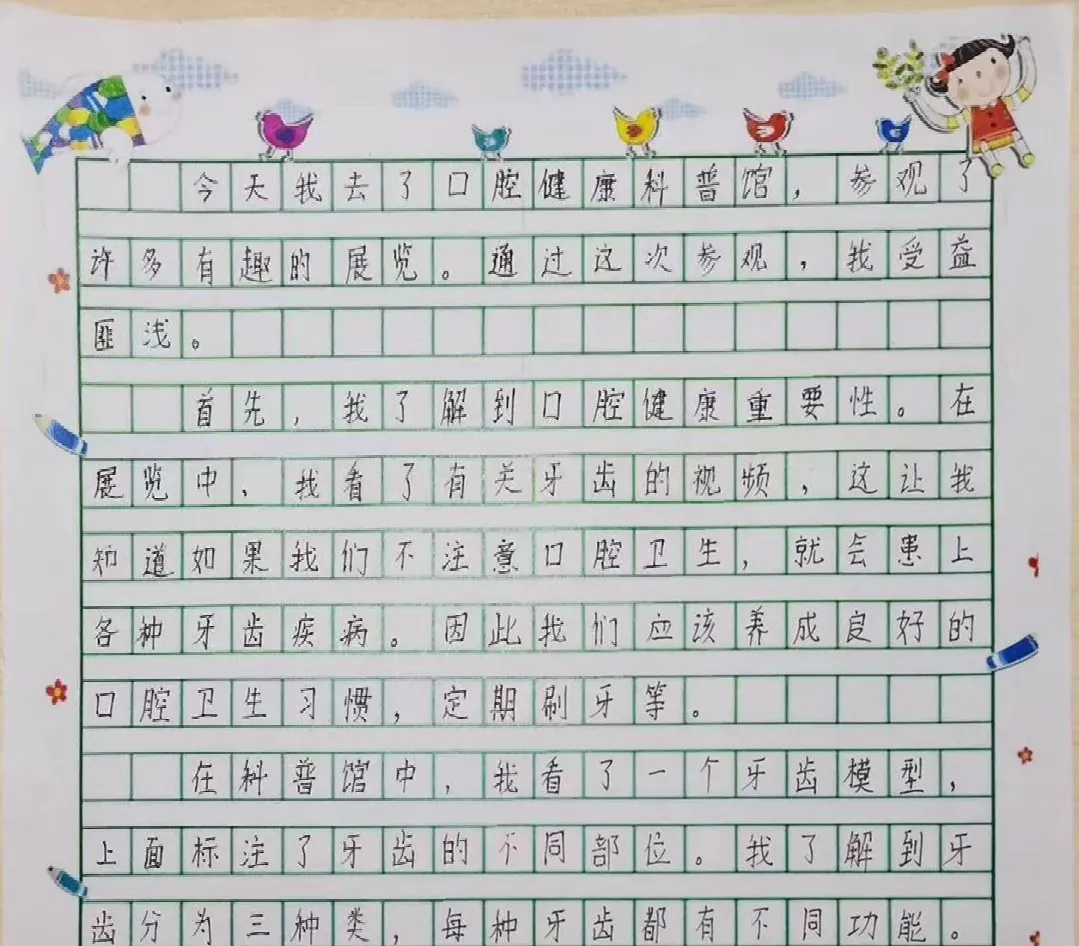 今天我去了口腔健康科普馆，参观了
许多有趣的展览。通过这次参观，我受益
匪浅。
首先，我了解到口腔健康重要性。在
展览中，我看了有关牙齿的视频，这让我
知道如果我们不注意口腔卫生，就会患上
各种牙齿疾病。因此我们应该养成良好的
口腔卫生习惯，定期刷牙等。
在科普馆中，我看了一个牙齿模型，
上面标注了牙齿的不同部位。我了解到牙
齿分为三种类，每种牙齿都有不同功能。